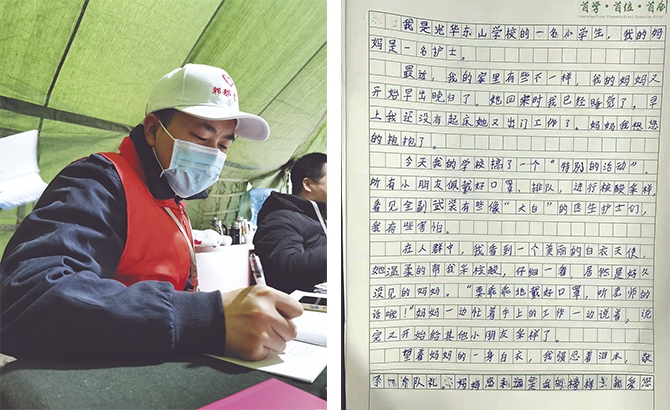 首学·首位·首创
我是光华东山学校的一名小学生，我的妈
妈是一名护士。
最近，我的家里有些不一样，我的妈妈又
开始早出晚归了。她回家时我已经睡觉了，早
上我还没有起床她又出门工作了。妈妈我很想您
的抱抱了。
今天我的学校搞了一个“特别的活动”，
所有小朋友佩戴好口罩、排队，进行核酸采样，
看见全副武装有些像“大白”的医生护士们，
我有些害怕。
在人群中，我看到一个美丽的白衣天使，
她温柔的帮我采核酸，仔细一看，居然是好久
没见的妈妈。“要乖乖地戴好口罩，听老师的
话哦！”妈妈一边忙着手上的工作一边说着，说
完又开始给其他小朋友采样了。
望着妈妈的一身白衣，我强忍着泪水，敬
了一个队礼。妈妈您永远是我的榜样！我爱您